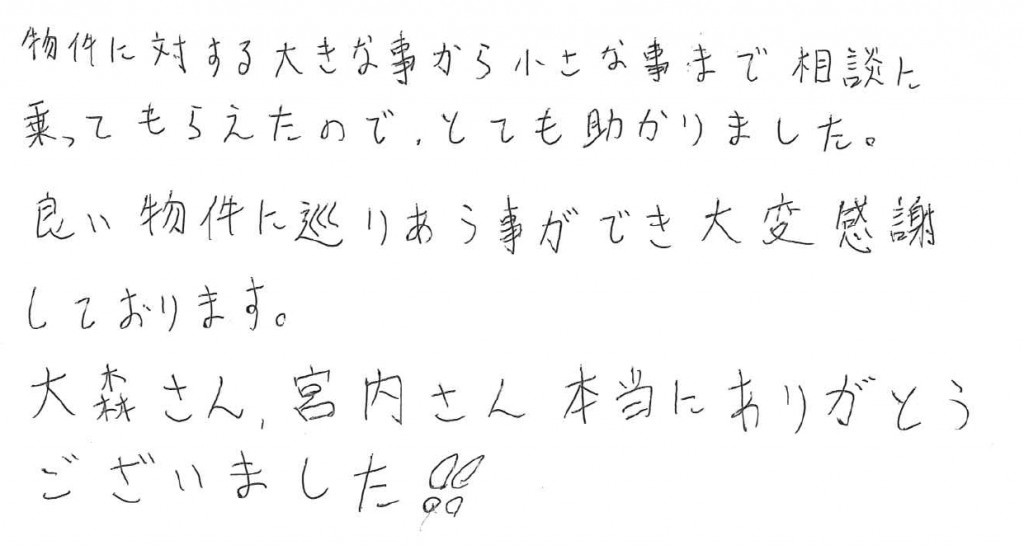 物件に対する大きな事から小さな事まで相談に
乗ってもらえたので、とても助かりました。
良い物件に巡りあう事ができ大変感謝
しております。
大森さん、宮内さん本当にありがとう
ございました!!